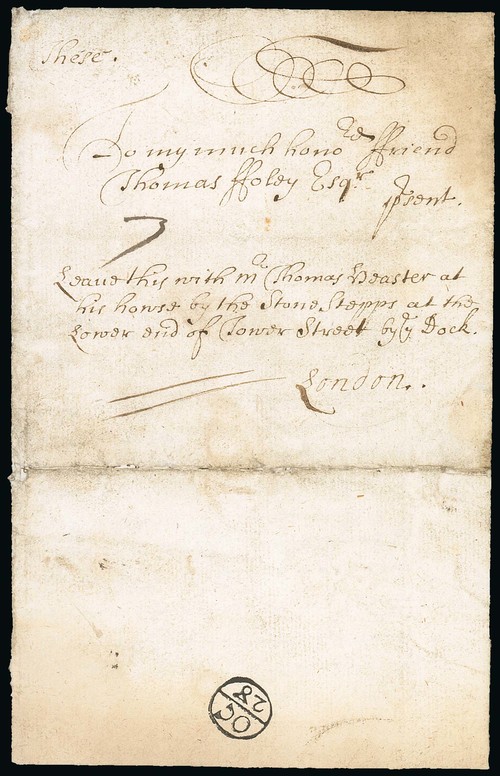 These.
To my much hono^red ffriend
Thomas ffoley Esq^r
psent.
3
Leaue this with m^r Thomas Heaster at
his howse by the Stone Stepps at the
Lower end of Tower Street by y Dock.
London.
28
OC